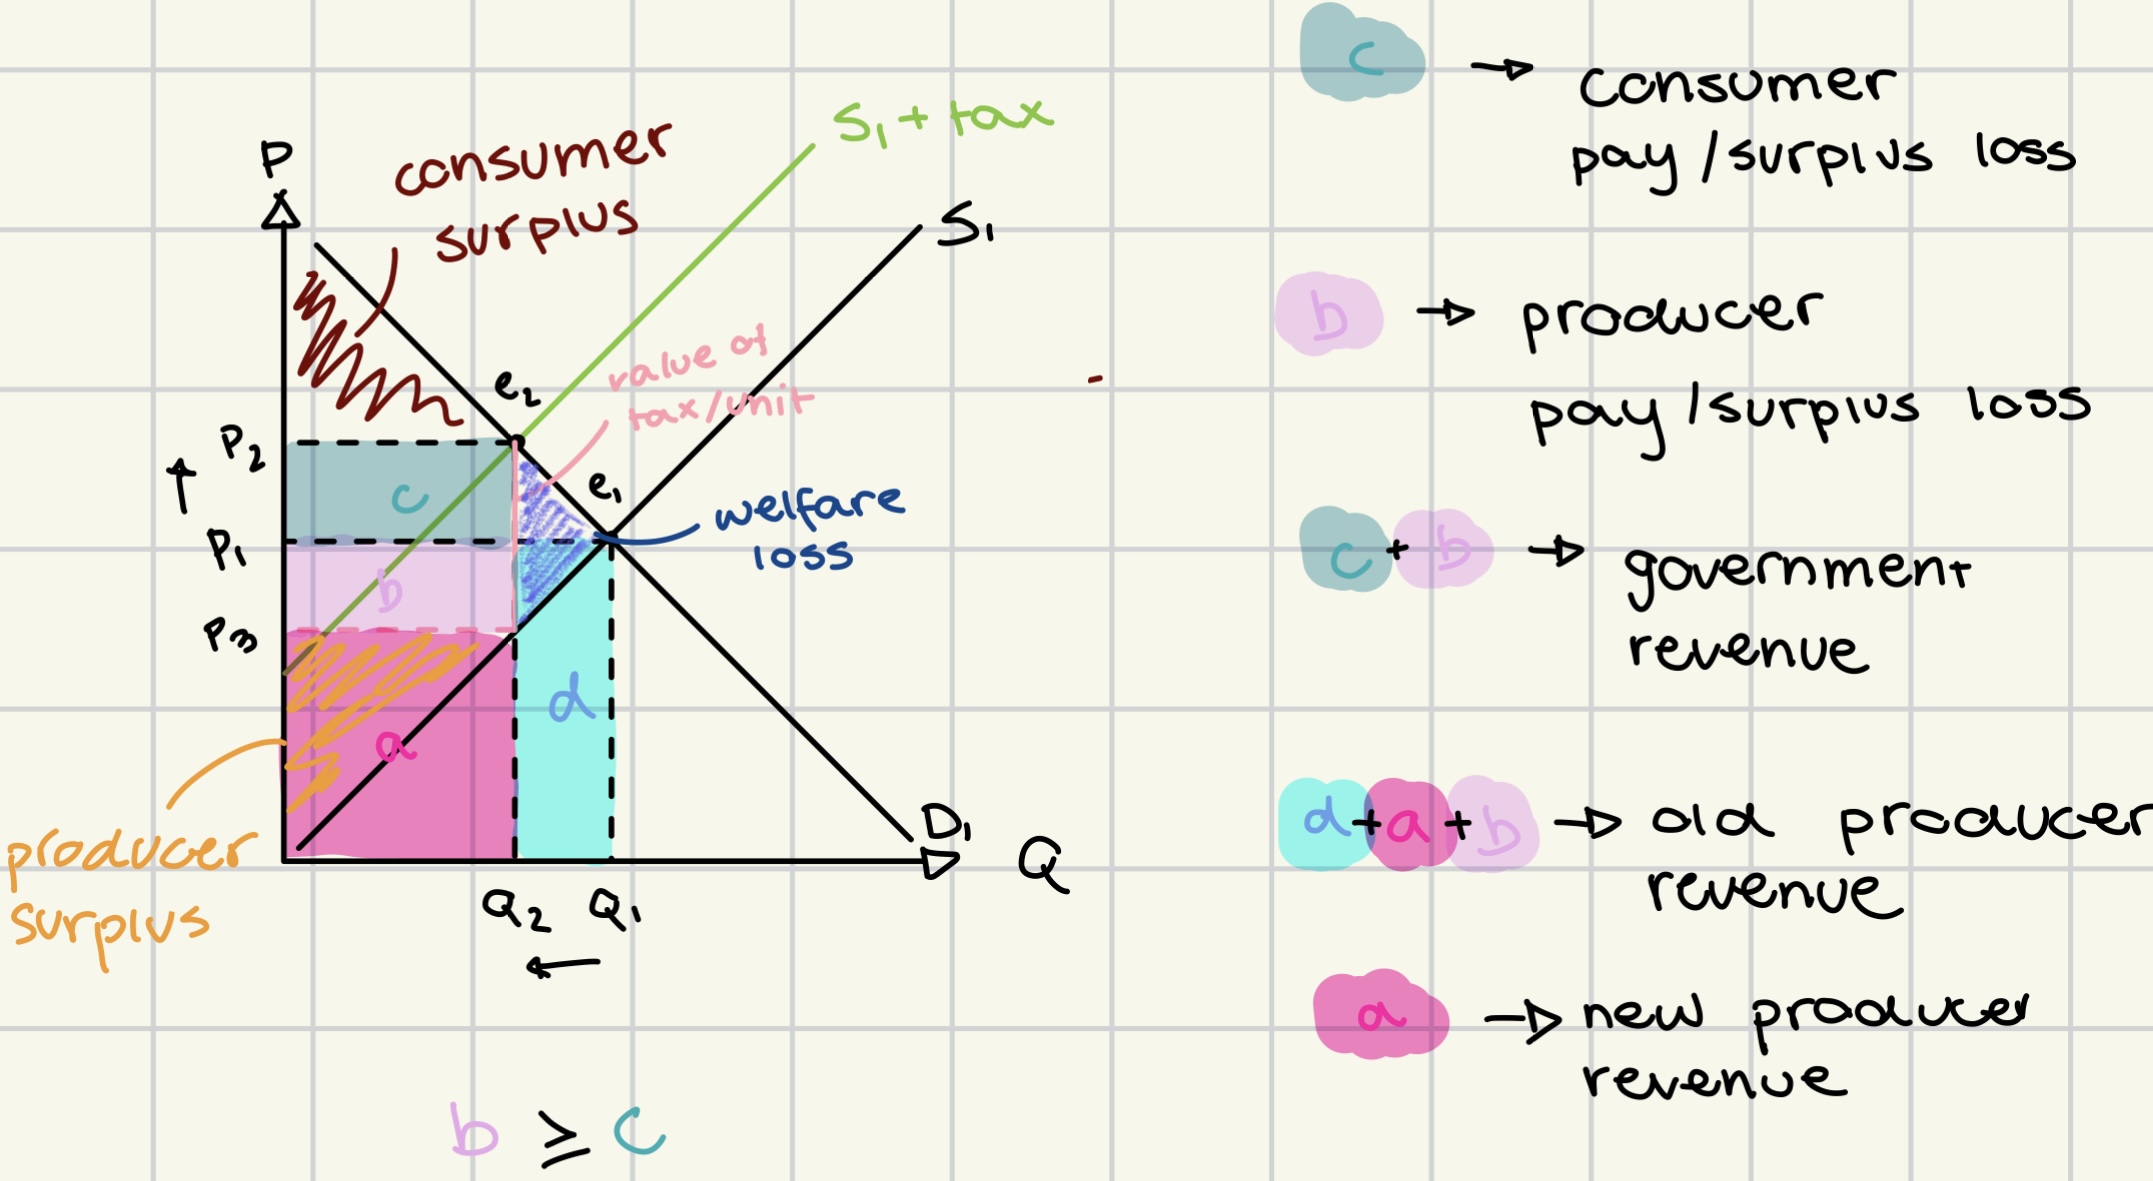 P
consumer
surplus
S₁ + tax
S₁
value of
tax/unit
e₂
e₁
P₂
↑
c
P₁
b
P₃
welfare
loss
d
a
producer
surplus
D₁
Q
Q₂ Q₁
←
b ≥ c
c → consumer
pay / surplus loss
b → producer
pay / surplus loss
c + b → government
revenue
d + a + b → old producer
revenue
a → new producer
revenue